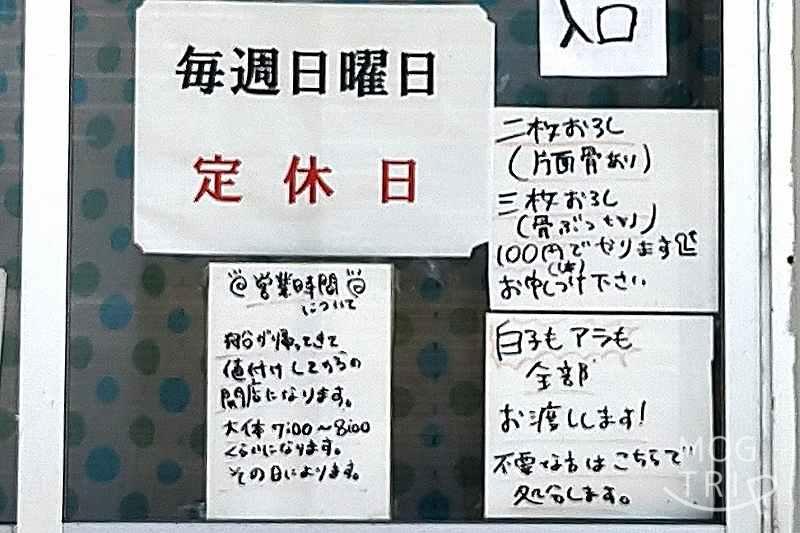 毎週日曜日
定休日
入口
二枚おろし
(片面骨あり)
三枚おろし
(骨ぶつ切り)
100円でやります
お申しつけ下さい
営業時間
について
が帰ってきて
値付けしてからの
開店になります。
大体7:00〜8:00
くらいになります。
その日によります。
白子もアラも
全部
お渡しします!
不要な方はこちらで
処分します。
MOG
TRIP